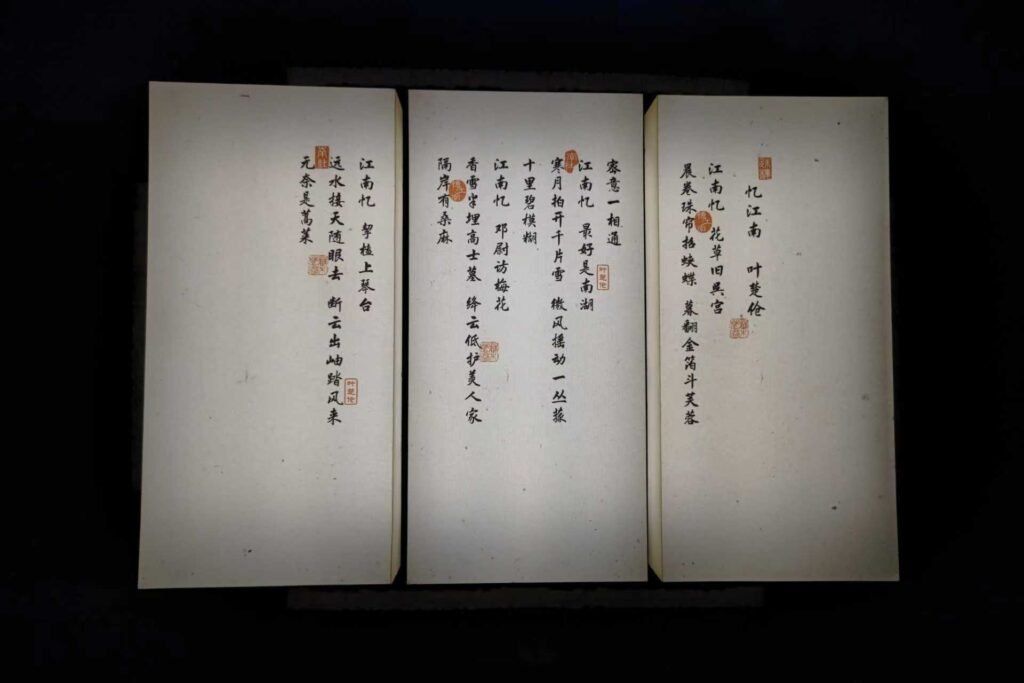 忆江南 叶楚伧
江南忆 花草旧吴宫
晨卷珠帘招蛱蝶 暮翻金箔斗芙蓉
密意一相通
江南忆 最好是南湖
寒月拍开千片雪 微风摇动一丛菰
十里碧模糊
江南忆 邓尉访梅花
香雪半埋高士墓 绛云低护美人家
隔岸有桑麻
江南忆 挈榼上琴台
远水接天随眼去 断云出岫踏风来
元奈是蒿莱
叶楚伧
叶楚伧